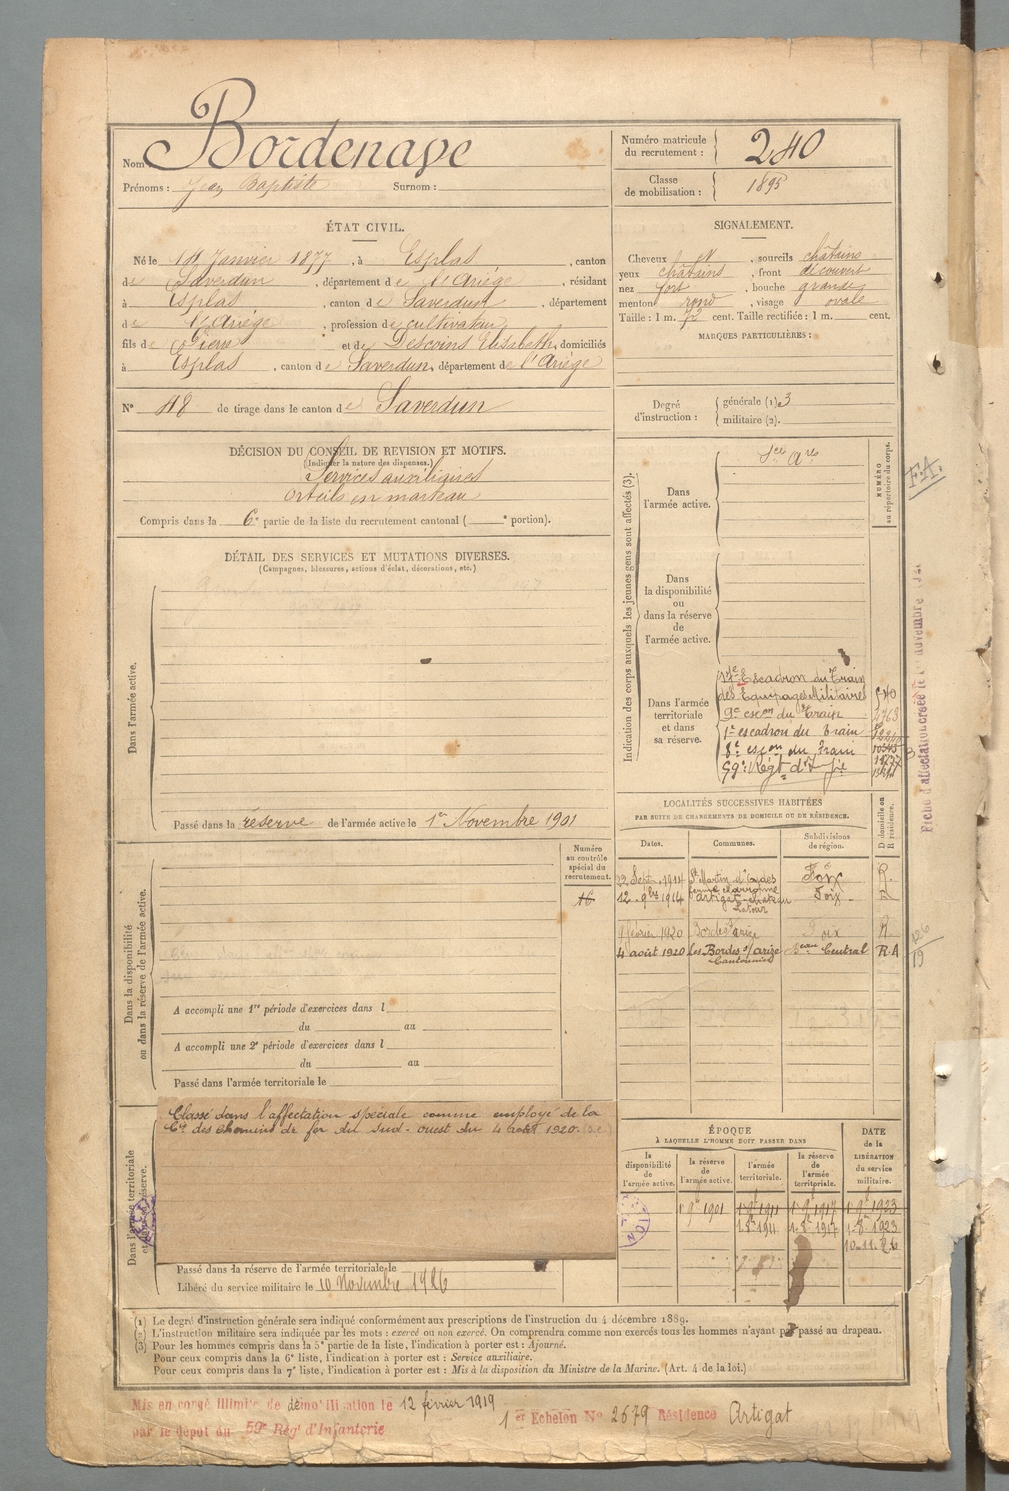 Nom : Bordenave
Prénoms : Jean Baptiste Surnom :
Numéro matricule du recrutement : 240
Classe de mobilisation : 1895
ÉTAT CIVIL.
Né le 14 Janvier 1877, à Esplas, canton
de Saverdun, département de l'Ariège, résidant
à Esplas, canton de Saverdun, département
de l'Ariège, profession de cultivateur
fils de Pierre et de Descoins Elisabeth, domiciliés
à Esplas, canton de Saverdun, département de l'Ariège
N° 48 de tirage dans le canton de Saverdun
SIGNALEMENT.
Cheveux et, sourcils châtains
yeux châtains, front découvert
nez fort, bouche grande
menton rond, visage ovale
Taille : 1 m. 72 cent. Taille rectifiée : 1 m. cent.
MARQUES PARTICULIÈRES :
Degré d'instruction : générale (1) 3
militaire (2).
DÉCISION DU CONSEIL DE REVISION ET MOTIFS.
(Indiquer la nature des dispenses.)
Services auxiliaires
Orteils en marteau
Compris dans la 6e partie de la liste du recrutement cantonal ( e portion).
DÉTAIL DES SERVICES ET MUTATIONS DIVERSES.
(Campagnes, blessures, actions d'éclat, décorations, etc.)
Dans l'armée active.
Passé dans la réserve de l'armée active le 1er Novembre 1901
Indication des corps auxquels les jeunes gens sont affectés (3).
NUMÉRO au répertoire du corps.
Dans l'armée active.
Sce Are
Dans la disponibilité ou dans la réserve de l'armée active.
Dans l'armée territoriale et dans sa réserve.
17e Escadron du Train
des Equipages Militaires
9e escon du Train
1e escadron du Train
8e escon du Train
59e Régt d'Ie
F.A.
Fiche d'affectation créée le novembre
LOCALITÉS SUCCESSIVES HABITÉES
PAR SUITE DE CHANGEMENTS DE DOMICILE OU DE RÉSIDENCE.
Dates. Communes. Subdivisions de région. D domicile ou R résidence.
22 Sept. 1914 St Martin d'Oydes Foix R.
12 9bre 1914 Artigat château Latour Foix
février 1920 Bordes s/ arize Foix R
4 août 1920 Les Bordes s/ arize Cantonnier Beau Central R.A
Numéro au contrôle spécial du recrutement.
Dans la disponibilité ou dans la réserve de l'armée active.
A accompli une 1re période d'exercices dans l
du au
A accompli une 2e période d'exercices dans l
du au
Passé dans l'armée territoriale le
Dans l'armée territoriale et dans sa réserve.
Classé dans l'affectation spéciale comme employé de la
Cie des Chemins de fer du Sud-ouest du 4 août 1920.
Passé dans la réserve de l'armée territoriale le
Libéré du service militaire le 10 Novembre 1926
ÉPOQUE
À LAQUELLE L'HOMME DOIT PASSER DANS
la disponibilité de l'armée active. la réserve de l'armée active. l'armée territoriale. la réserve de l'armée territoriale.
DATE de la LIBÉRATION du service militaire.
1 9bre 1901 1 9bre 1911 1 9bre 1917 1 9bre 1923
1-8bre 1911 1-8bre 1917 1-8bre 1923
10-11-26
(1) Le degré d'instruction générale sera indiqué conformément aux prescriptions de l'instruction du 4 décembre 1889.
(2) L'instruction militaire sera indiquée par les mots : exercé ou non exercé. On comprendra comme non exercés tous les hommes n'ayant pas passé au drapeau.
(3) Pour les hommes compris dans la 5e partie de la liste, l'indication à porter est : Ajourné.
Pour ceux compris dans la 6e liste, l'indication à porter est : Service auxiliaire.
Pour ceux compris dans la 7e liste, l'indication à porter est : Mis à la disposition du Ministre de la Marine. (Art. 4 de la loi.)
Mis en congé illimité de démobilisation le 12 février 1919
par le dépôt du 59e Régt d'Infanterie
1er Echelon No 2679 Résidence Artigat